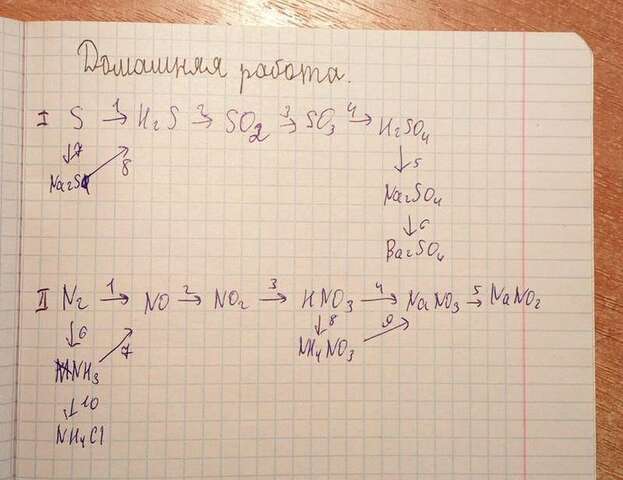 Домашняя работа.
I S →1 H2S →2 SO2 →3 SO3 →4 H2SO4
↓7 8 ↓5
Na2S Na2SO4
↓6
Ba2SO4
II N2 →1 NO →2 NO2 →3 HNO3 →4 NaNO3 →5 NaNO2
↓6 7 ↓8 9
NH3 NH4NO3
↓10
NH4Cl